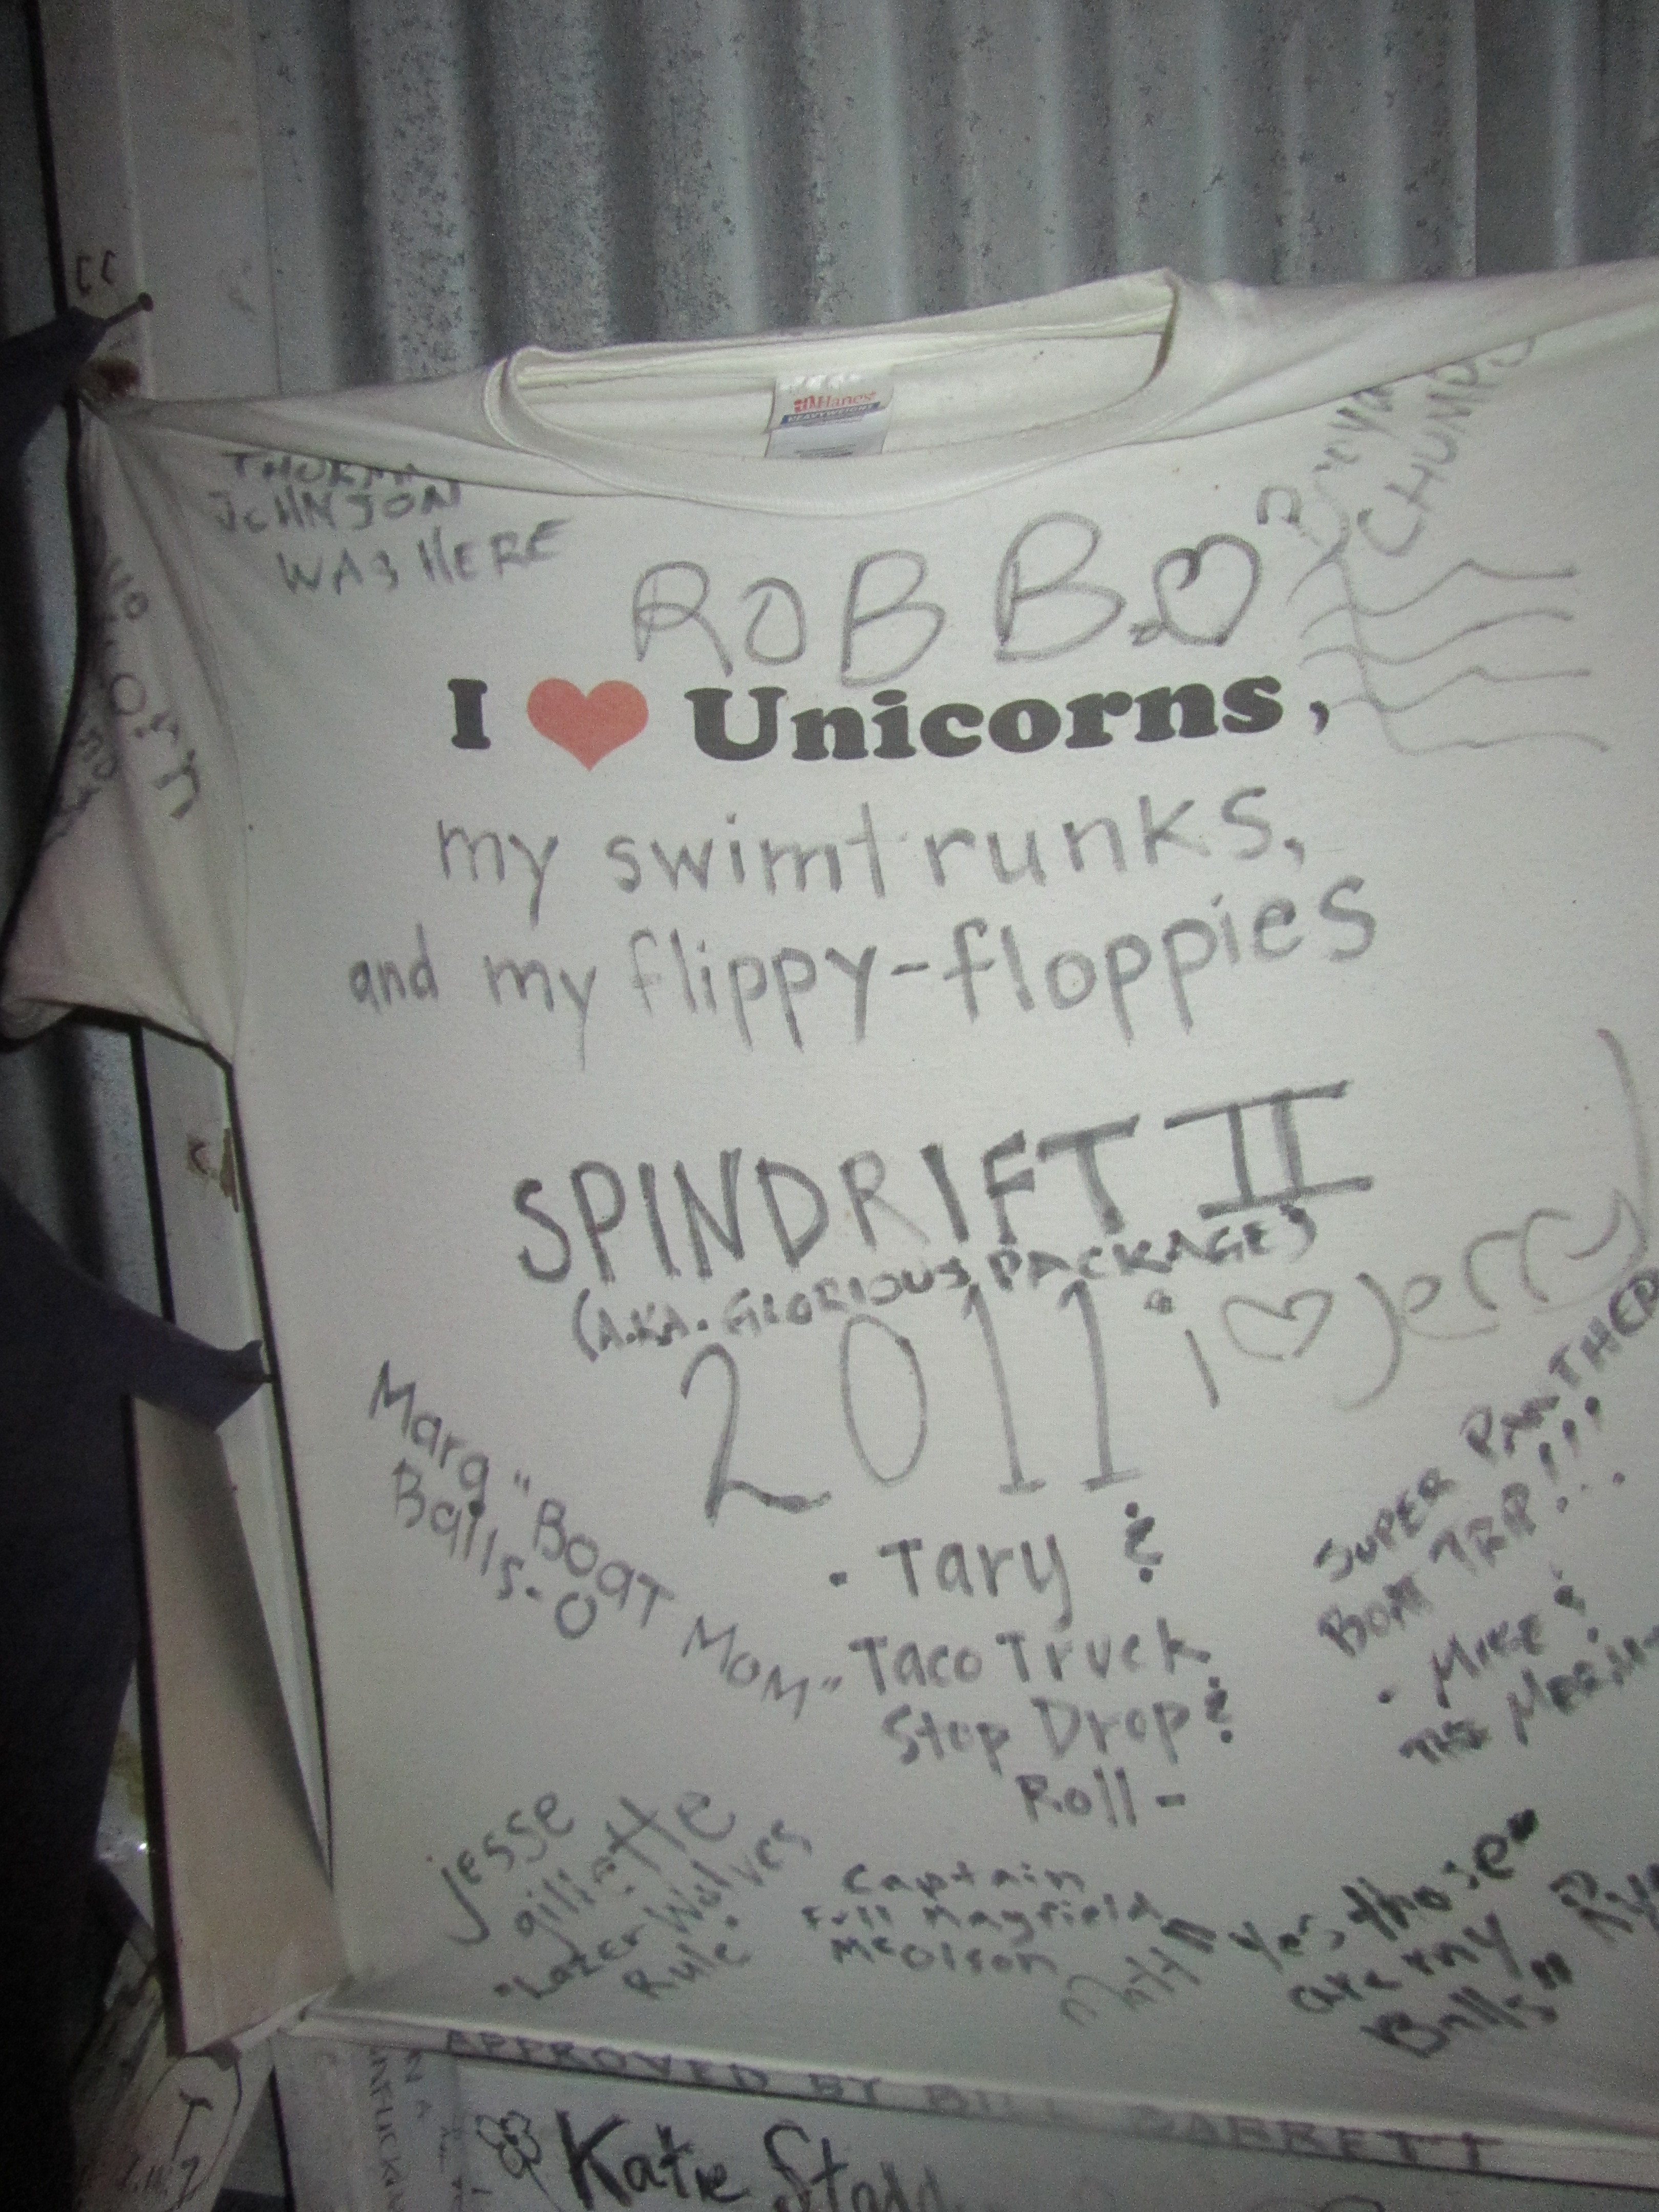 CC
Hanes
HEAVYWEIGHT
JOHNSON
WAS HERE
CHUMPS
ROBB
I ♥ Unicorns,
my swimtrunks,
and my flippy-floppies
SPINDRIFT II
(A.K.A. GLORIOUS PACKAGE)
2011
i ♡ Jerry
Marg "BOAT MOM"
Balls-O
- Tary &
Taco Truck
Stop Drop &
Roll -
SUPER PANTHER
BOAT TRIP!!!...
- MIKE &
THE
Jesse
gillette
"Lazer Wolves
Rule"
Captain
Full Mayfield
McOlson
"Yes those
are my
Balls"
APPROVED BY BILL BARRETT
Katie